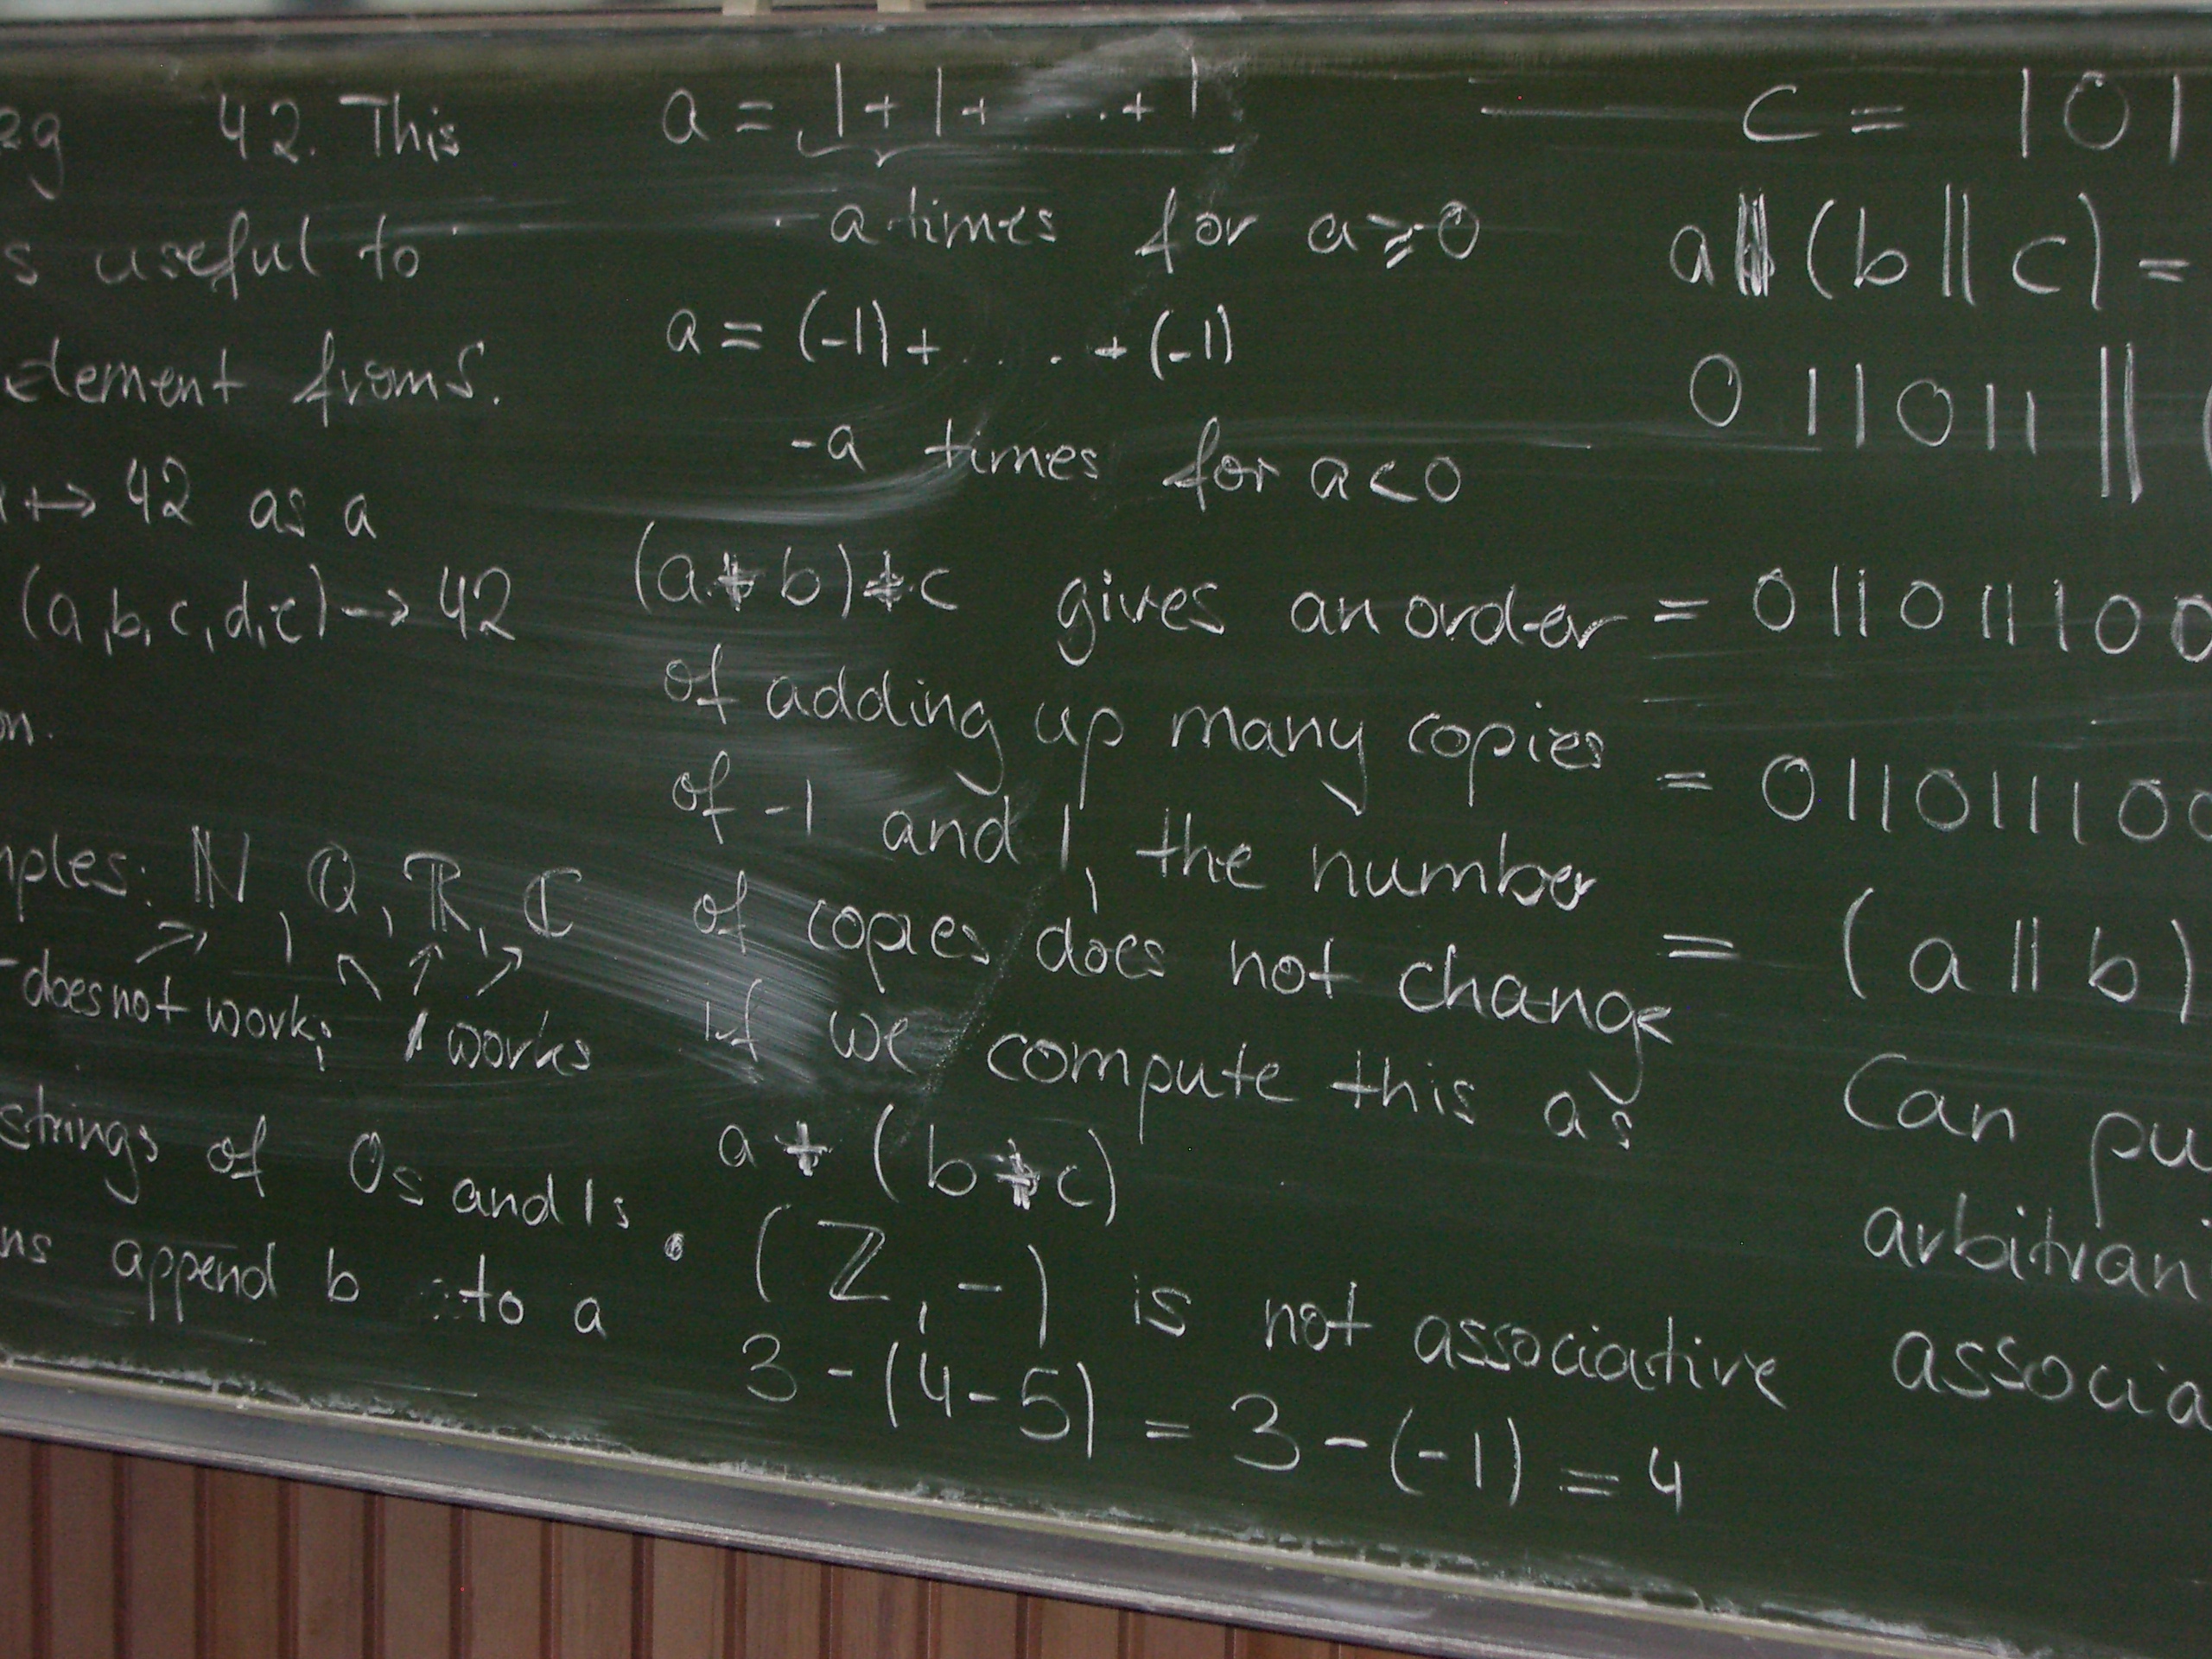 eg 42. This
s useful to
element from S.
↦ 42 as a
(a,b,c,d,e) → 42
on.
mples: ℕ, ℚ, ℝ, ℂ
- does not work; works
strings of 0s and 1s
ns append b to a
a = 1 + 1 + ... + 1
a times for a ⩾ 0
a = (-1) + ... + (-1)
-a times for a < 0
(a + b) + c gives an order
of adding up many copies
of -1 and 1, the number
of copies does not change
if we compute this as
a + (b + c)
• (ℤ, -) is not associative
3 - (4 - 5) = 3 - (-1) = 4
c = 101
a || (b || c) =
011011 || (
= 011011100
= 011011100
= (a || b)
Can pu
arbitrari
associa